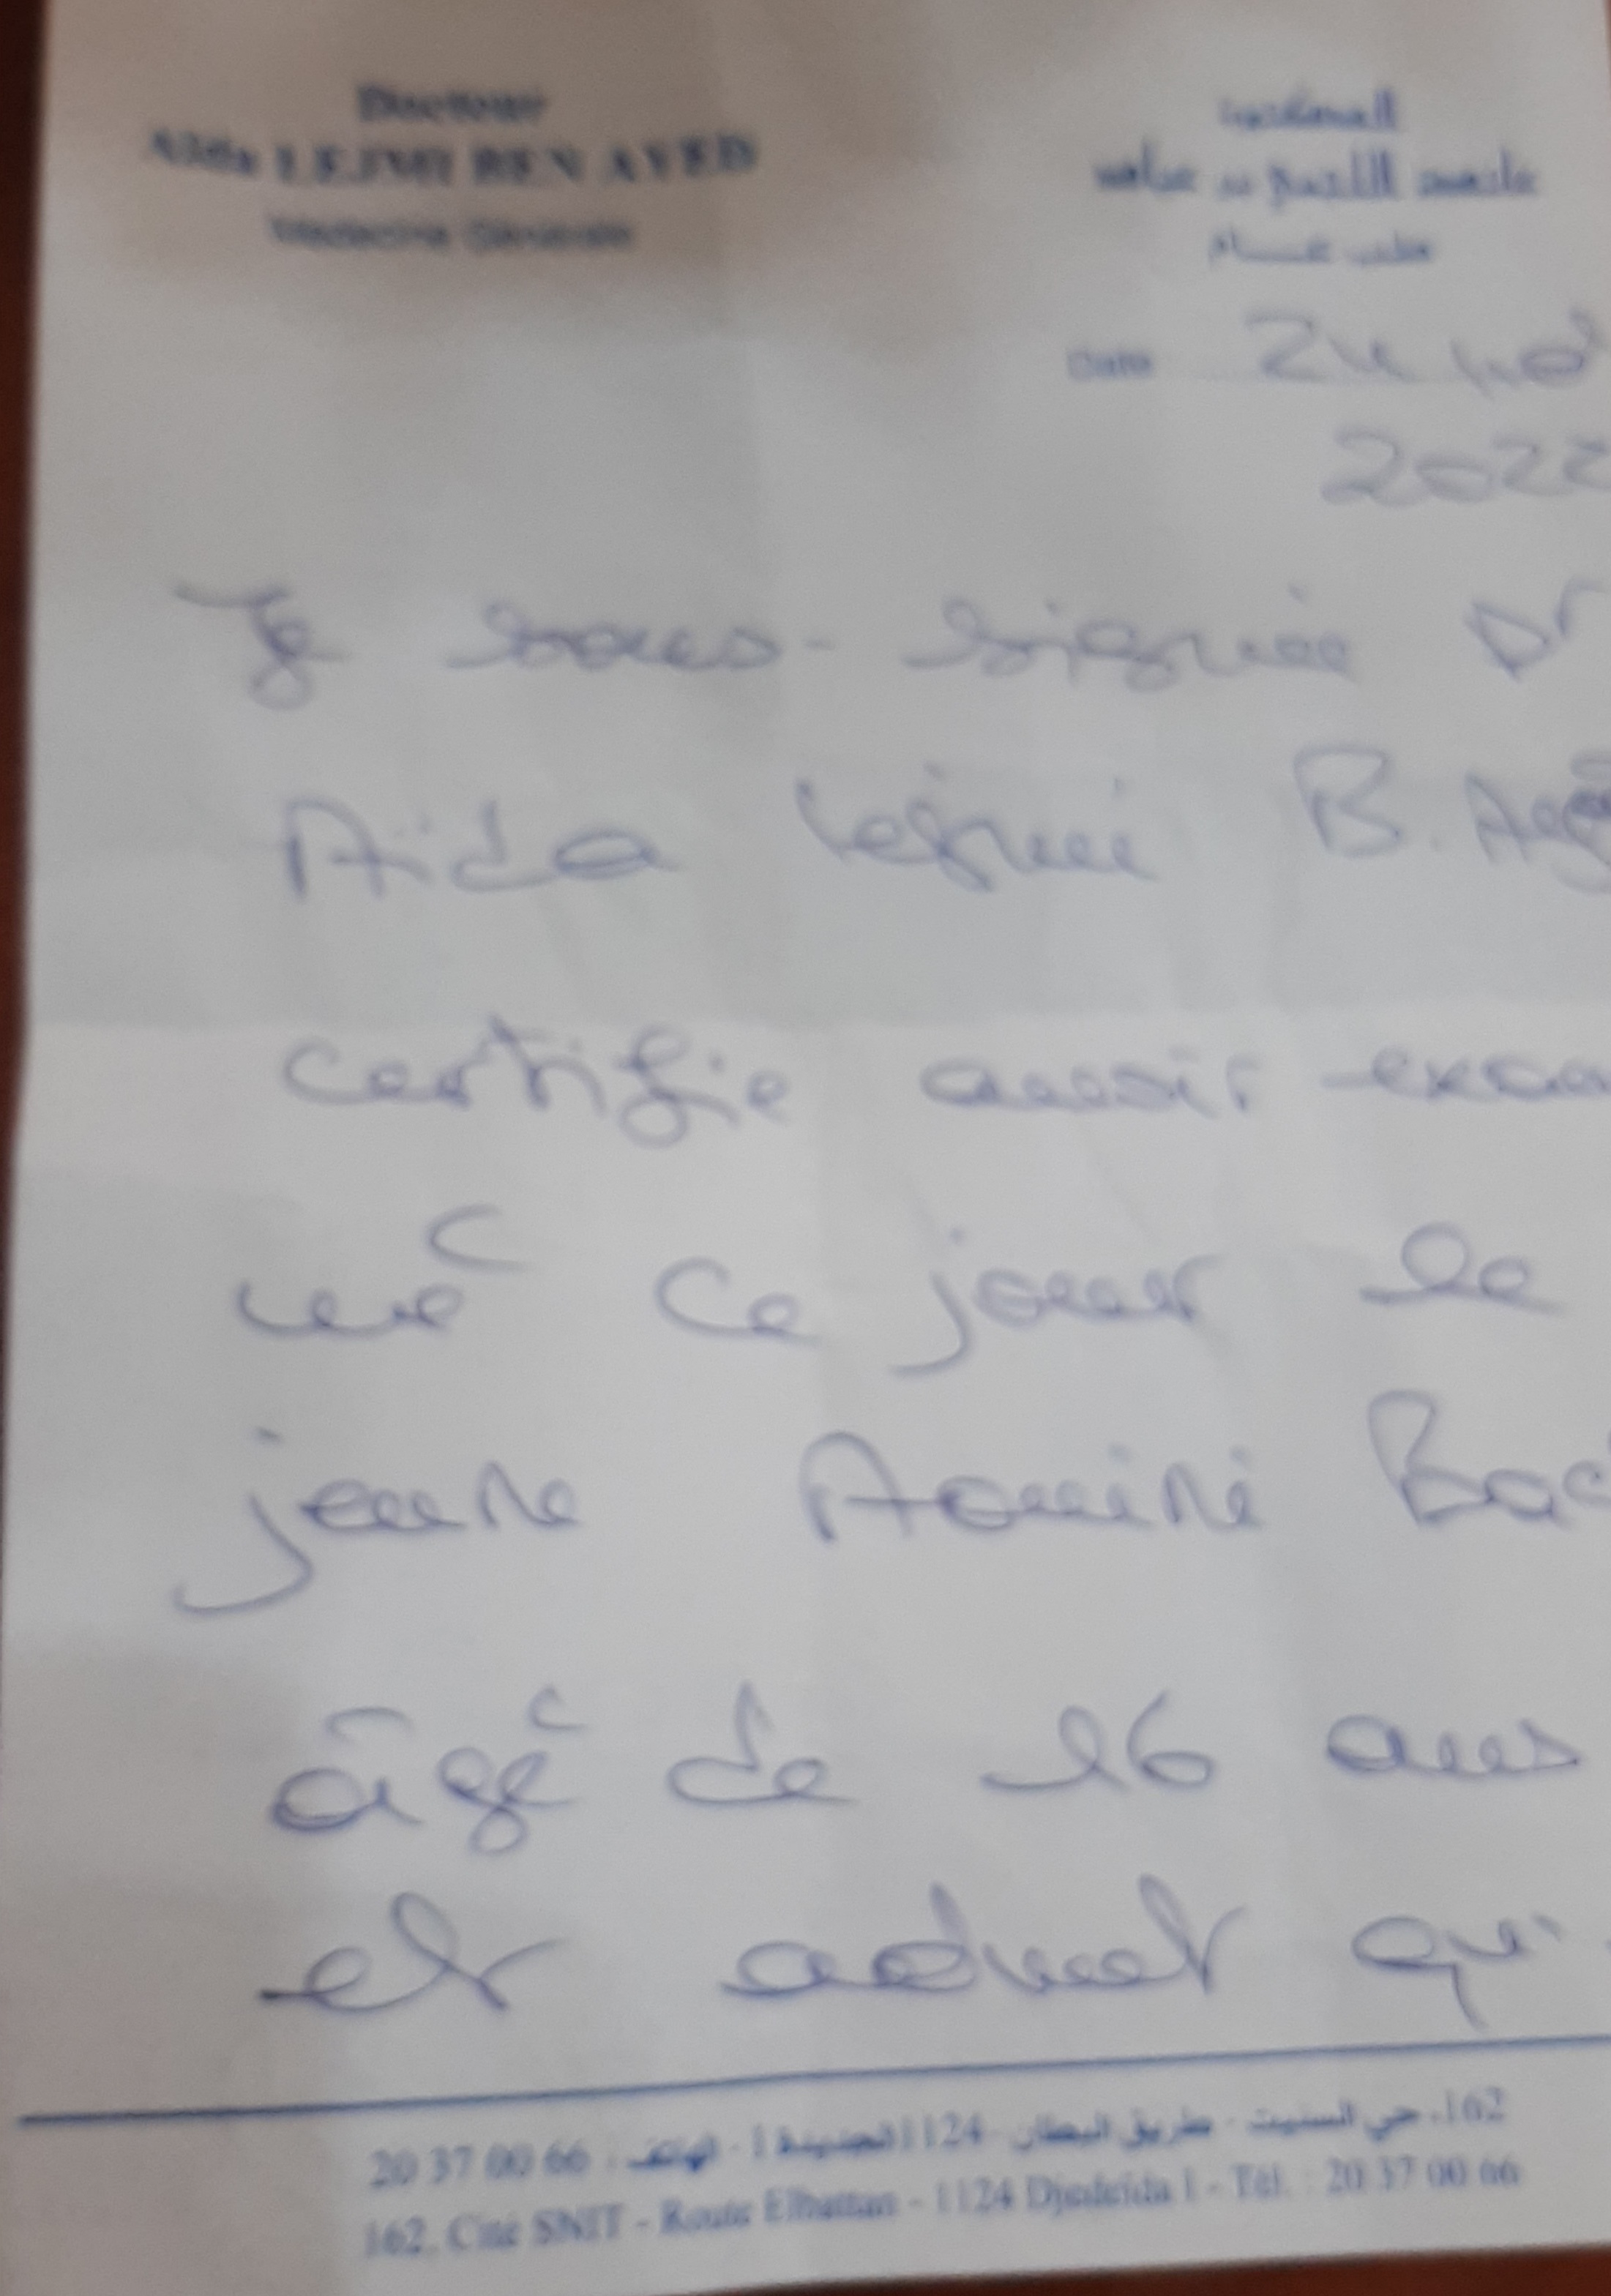 Docteur
Aïda LEJMI BEN AYED
Médecine Générale
الدكتورة
عايدة اللجمي بن عياد
طب عــــام
Date 24 no
2022
Je sous-signée Dr
Aida Lejmi B. Aye
certifie avoir exam
iné ce jour le
jeune Aouini Bac
âgé de 16 ans
et admet qu'
162، حي السنيت - طريق البطان - 1124 الجديدة 1 - الهاتف : 20 37 00 66
162, Cité SNIT - Route Elbattan - 1124 Djedeida 1 - Tél. : 20 37 00 66